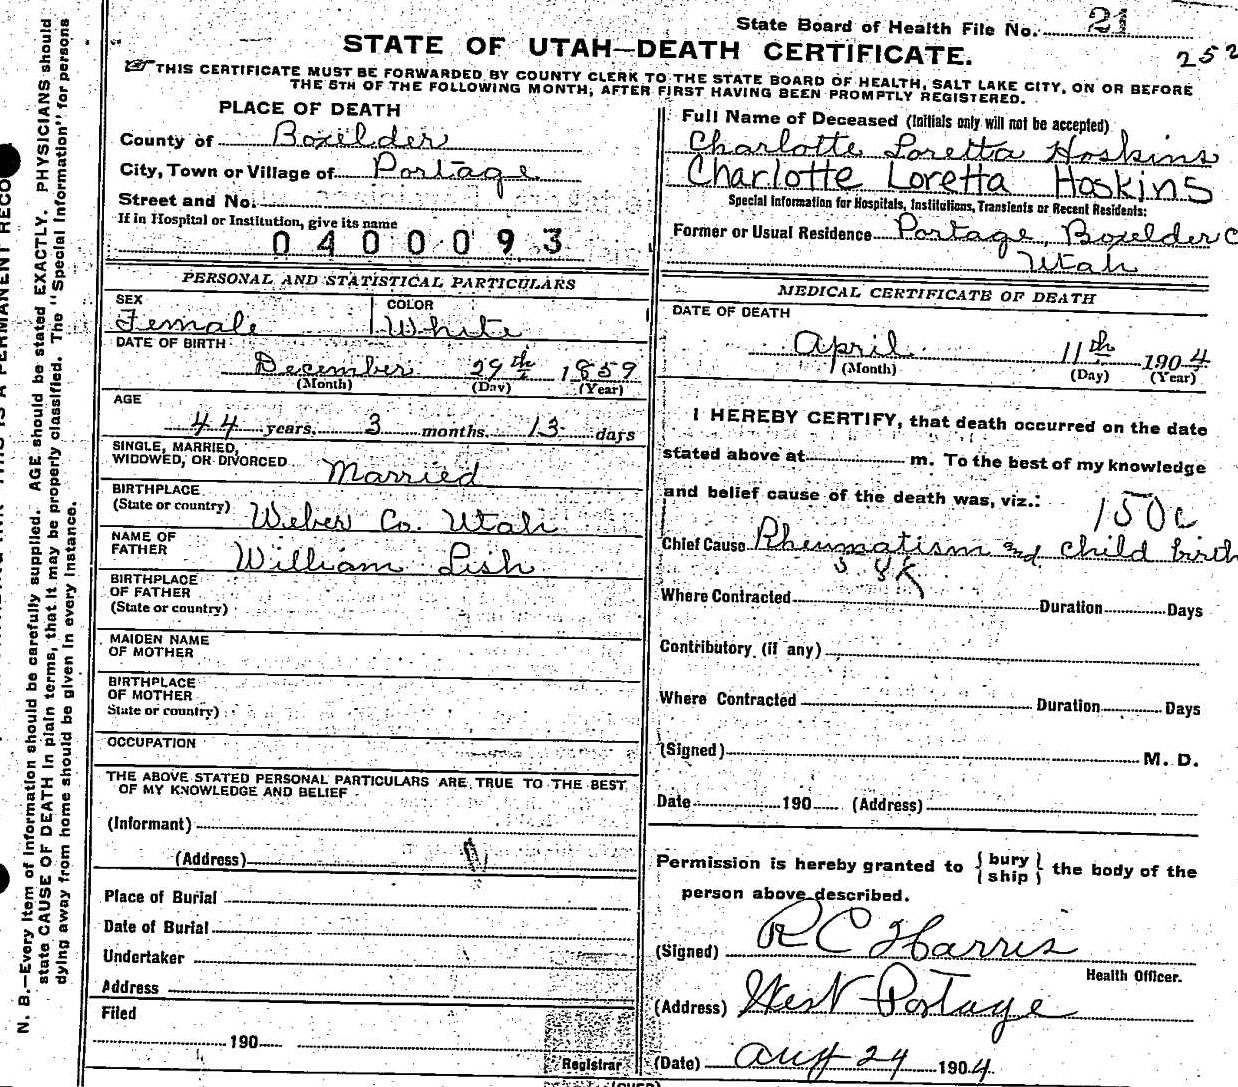 State Board of Health File No. 21
252
STATE OF UTAH—DEATH CERTIFICATE.
THIS CERTIFICATE MUST BE FORWARDED BY COUNTY CLERK TO THE STATE BOARD OF HEALTH, SALT LAKE CITY, ON OR BEFORE
THE 5TH OF THE FOLLOWING MONTH; AFTER FIRST HAVING BEEN PROMPTLY REGISTERED.
PLACE OF DEATH
County of Boxelder
City, Town or Village of Portage
Street and No.
If in Hospital or Institution, give its name
0400093
PERSONAL AND STATISTICAL PARTICULARS
SEX COLOR
Female White
DATE OF BIRTH
December 29th 1859
(Month) (Day) (Year)
AGE
44 years, 3 months, 13 days
SINGLE, MARRIED,
WIDOWED, OR DIVORCED Married
BIRTHPLACE
(State or country) Weber Co. Utah
NAME OF
FATHER William Lish
BIRTHPLACE
OF FATHER
(State or country)
MAIDEN NAME
OF MOTHER
BIRTHPLACE
OF MOTHER
State or country)
OCCUPATION
THE ABOVE STATED PERSONAL PARTICULARS ARE TRUE TO THE BEST
OF MY KNOWLEDGE AND BELIEF
(Informant)
(Address)
Place of Burial
Date of Burial
Undertaker
Address
Filed
190
Registrar
Full Name of Deceased (Initials only will not be accepted)
Charlotte Loretta Hoskins
Charlotte Loretta Hoskins
Special Information for Hospitals, Institutions, Transients or Recent Residents:
Former or Usual Residence Portage, Boxelder C
Utah
MEDICAL CERTIFICATE OF DEATH
DATE OF DEATH
April 11th 1904
(Month) (Day) (Year)
I HEREBY CERTIFY, that death occurred on the date
stated above at m. To the best of my knowledge
and belief cause of the death was, viz.:
150c
Chief Cause Rheumatism and child birth
Where Contracted Duration Days
Contributory (if any)
Where Contracted Duration Days
(Signed) M. D.
Date 190 (Address)
Permission is hereby granted to {bury} the body of the
{ship}
person above described.
(Signed) R C Harris
Health Officer.
(Address) West Portage
(Date) Aug 24 1904
(OVER)
N. B.—Every item of information should be carefully supplied. AGE should be stated EXACTLY. PHYSICIANS should
state CAUSE OF DEATH in plain terms, that it may be properly classified. The "Special Information" for persons
dying away from home should be given in every instance.
THIS IS A PERMANENT RECO